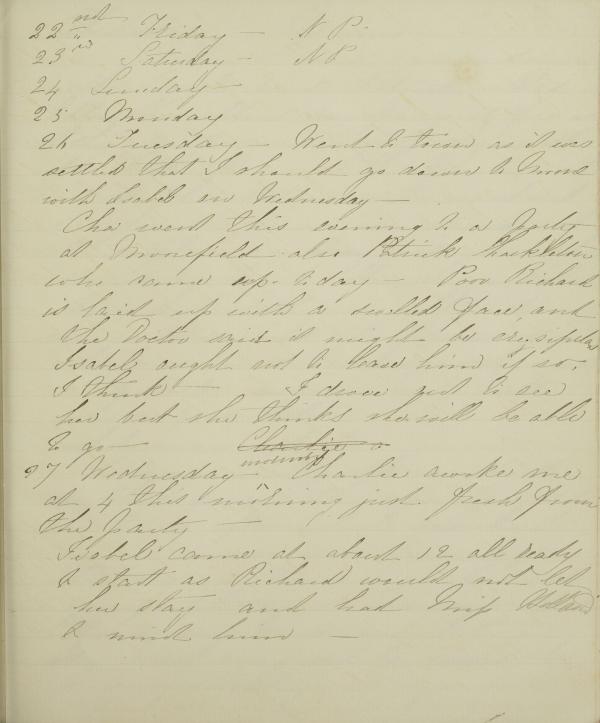 22nd Friday — N P.
23rd Saturday — N P
24 Sunday —
25 Monday
26 Tuesday — Went to town as it was
settled that I should go down to Moone
with Isabel on Wednesday —
Cha went this evening to a party
at Moorefield also Patrick Shackleton
who came up today — Poor Richard
is laid up with a swelled face and
the Doctor said it might be erysipelas
Isabel ought not to leave him if so.
I think — I drove out to see
her but she thinks she will be able
to go — Charlie a
27 Wednesday — Charlie awoke me
at 4 this morning just fresh from
the party —
Isabel came at about 12 all ready
to start as Richard would not let
her stay and had Miss
to mind him —